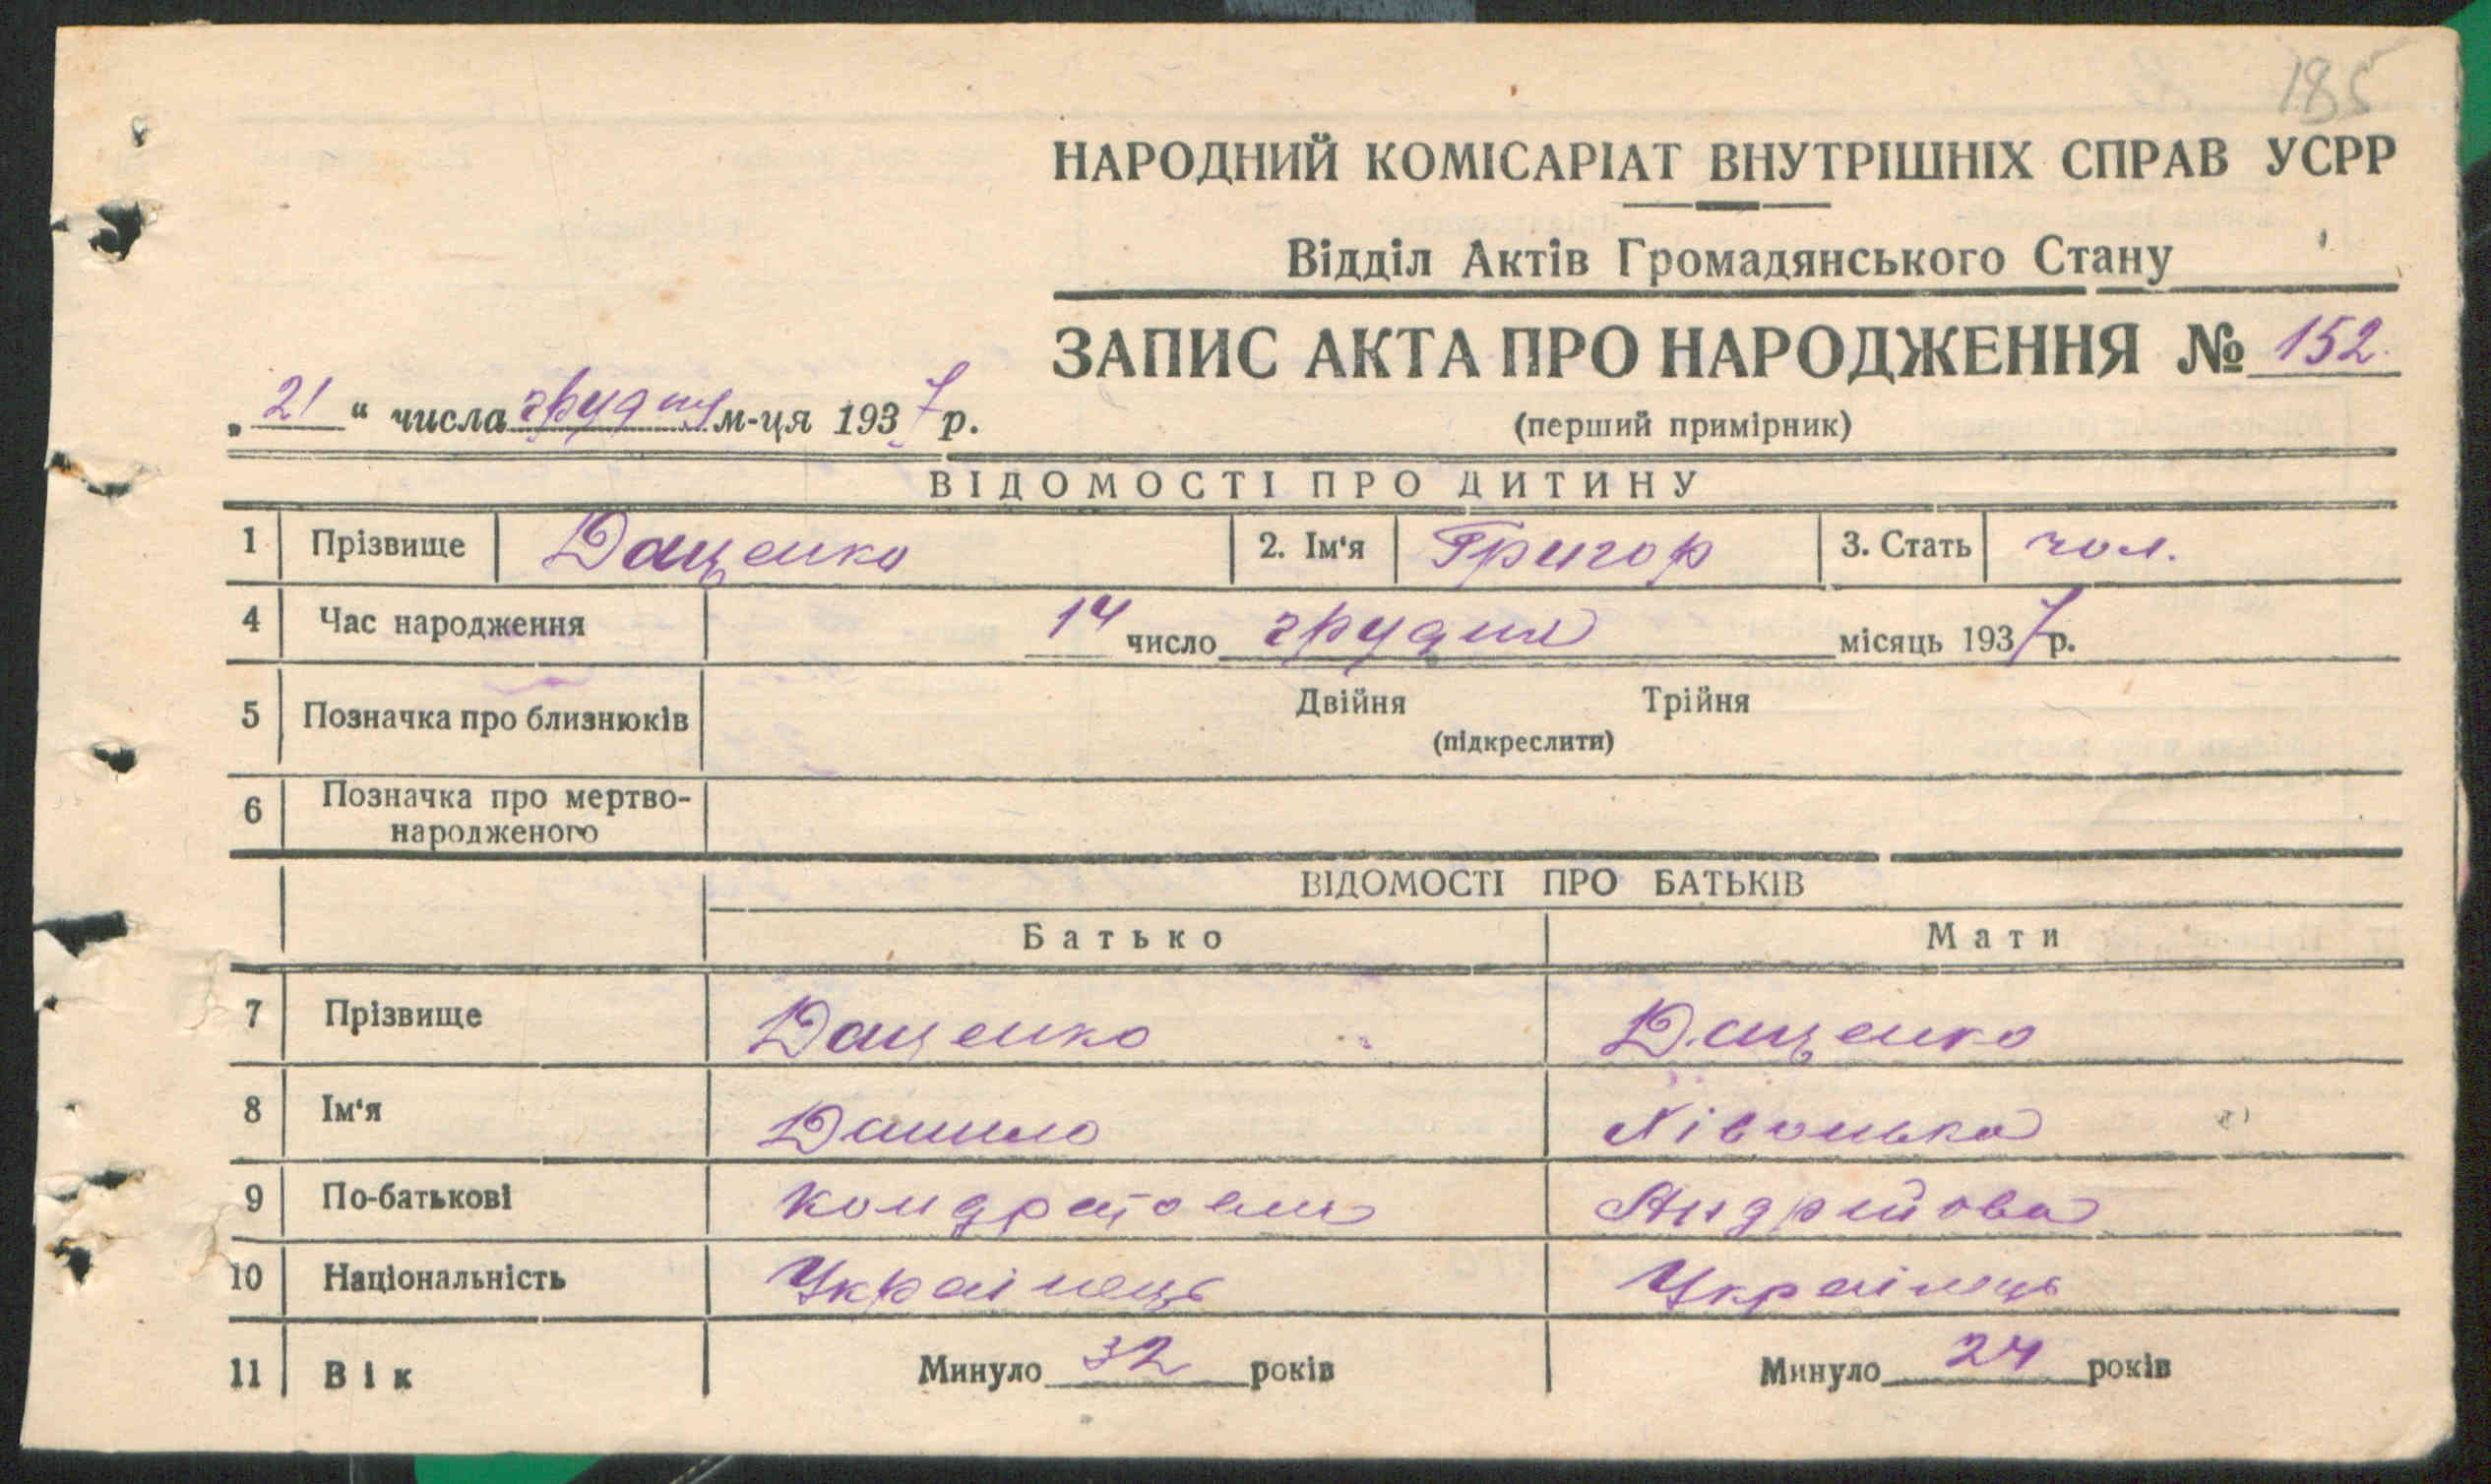 185
НАРОДНИЙ КОМІСАРІАТ ВНУТРІШНІХ СПРАВ УСРР
Відділ Актів Громадянського Стану
ЗАПИС АКТА ПРО НАРОДЖЕННЯ № 152
„21“ числа грудня м-ця 1937 р.
(перший примірник)
ВІДОМОСТІ ПРО ДИТИНУ
1 Прізвище Даценко 2. Ім‘я Григор 3. Стать чол.
4 Час народження 14 число грудня місяць 1937 р.
5 Позначка про близнюків Двійня Трійня
(підкреслити)
6 Позначка про мертво-
народженого
ВІДОМОСТІ ПРО БАТЬКІВ
Батько Мати
7 Прізвище Даценко Даценко
8 Ім‘я Данило
9 По-батькові Кондратович Андрийова
10 Національність Українець Українець
11 Вік Минуло 32 років Минуло 24 років